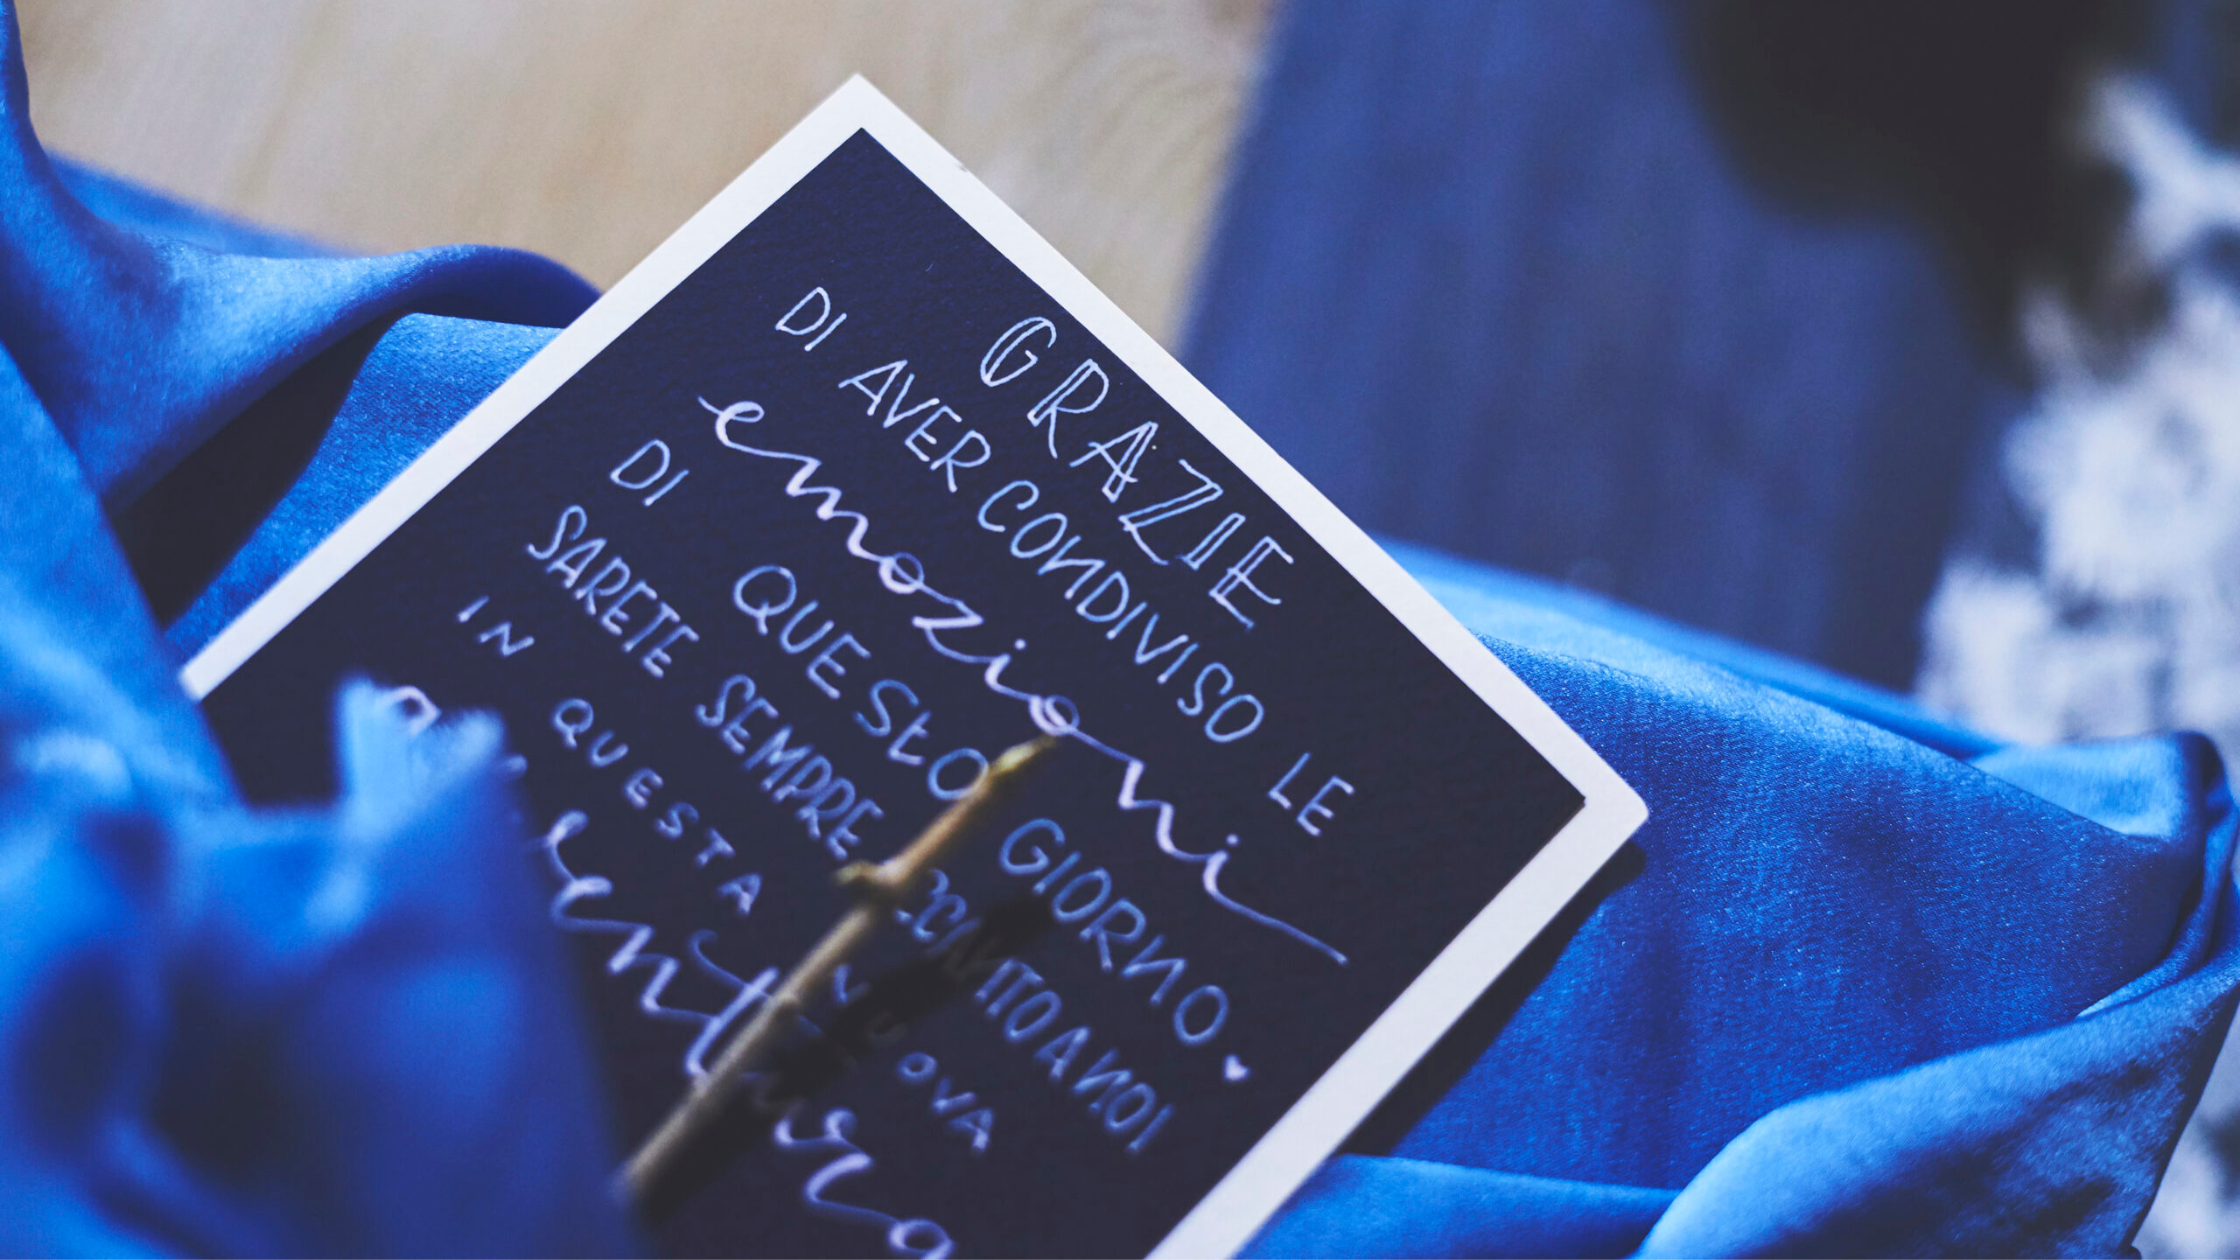 GRAZIE
DI AVER CONDIVISO LE
emozioni
DI QUESTO GIORNO
SARETE SEMPRE ACCANTO A NOI
IN QUESTA NUOVA
avventura